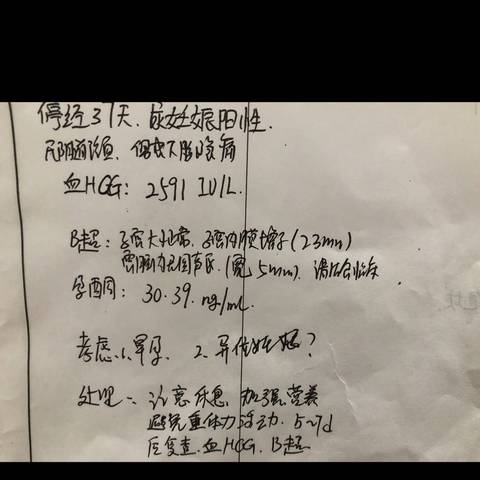 停经37天.尿妊娠阳性.
无阴道流血,偶有下腹疼痛
血HCG: 2591 IU/L.
B超:子宫大小正常.子宫内膜增厚(23mm)
宫腔内无回声区.(宽5mm).请结合临床.
孕酮: 30.39.ng/mL.
考虑:1.早孕. 2.异位妊娠?
处理:注意休息.加强营养
避免重体力活动.5~7d
后复查.血HCG.B超